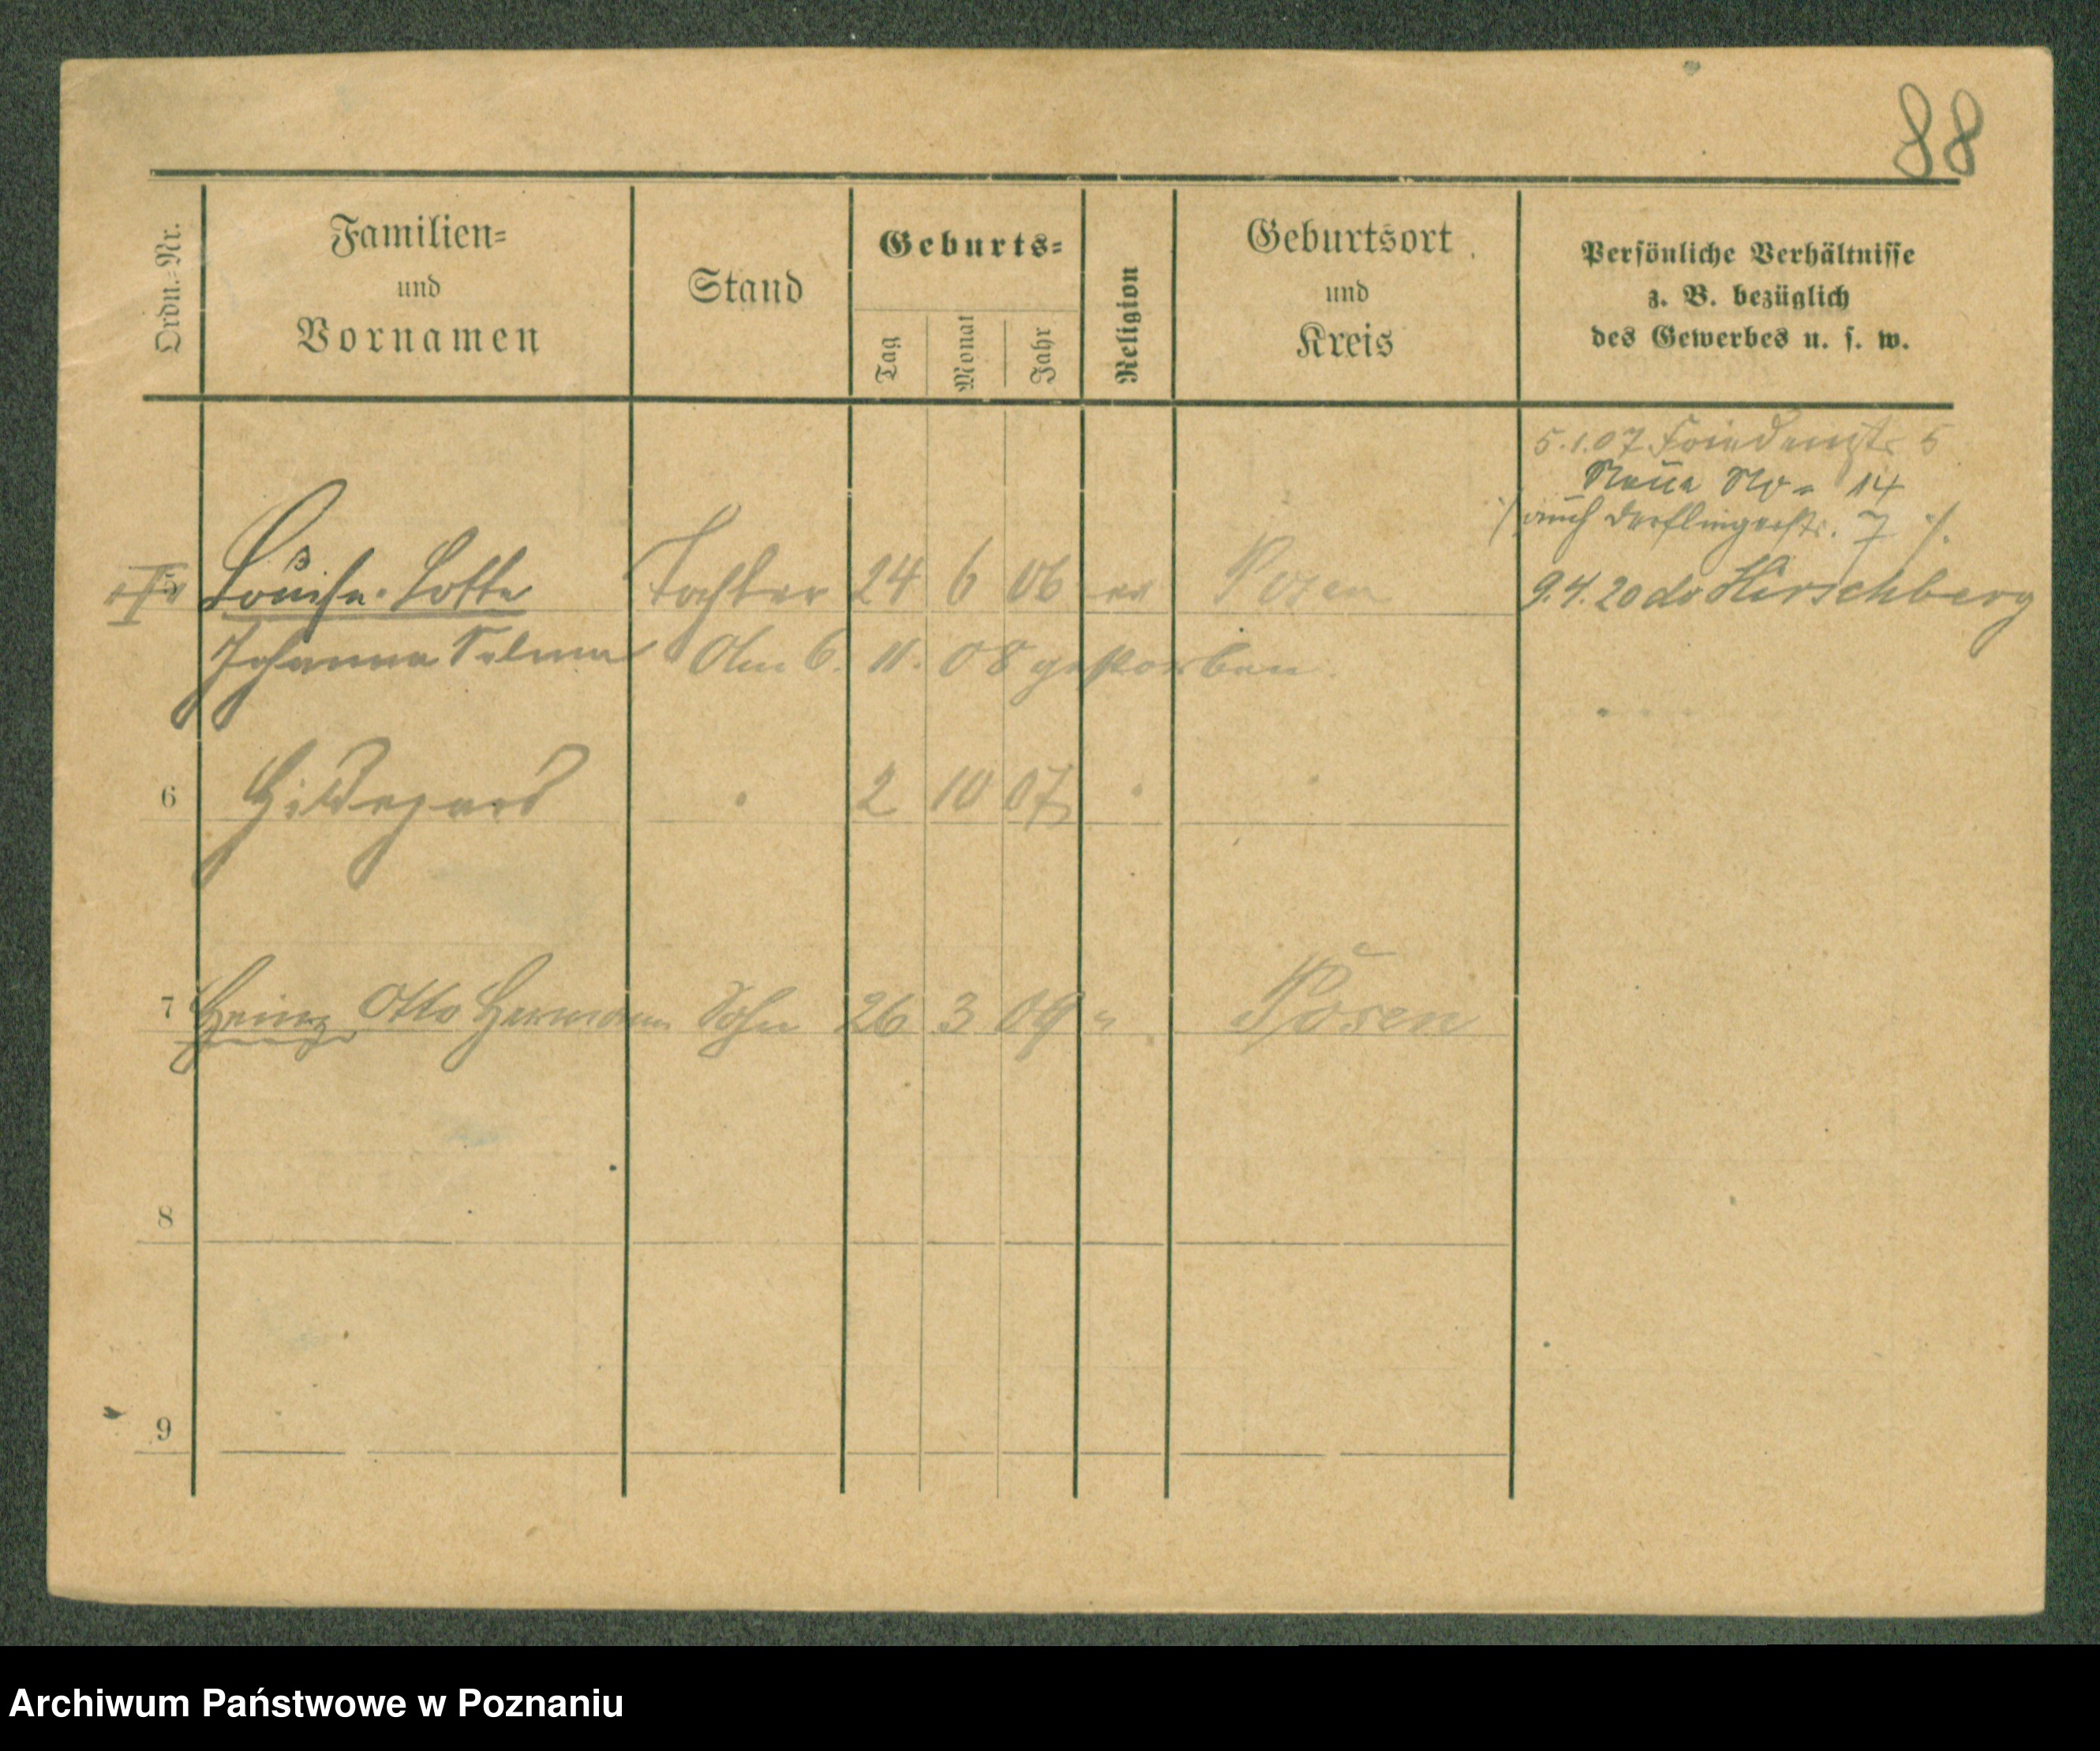 88
Ordn.-Nr.
Familien-
und
Vornamen
Stand
Geburts-
Tag
Monat
Jahr
Religion
Geburtsort
und
Kreis
Persönliche Verhältnisse
z. B. bezüglich
des Gewerbes u. s. w.
5.1.07 Friedenstr. 5
Neue No 14
auch Derflingerstr. 7
Louise Lotte Tochter 24 6 06 ev Posen 9.4.20 do Hirschberg
Johanna Selma Am 6. 11. 08 gestorben.
6 Hildegard " 2 10 07 " "
7 Heinz Otto Hermann Sohn 26 3 09 " Posen
8
9
Archiwum Państwowe w Poznaniu